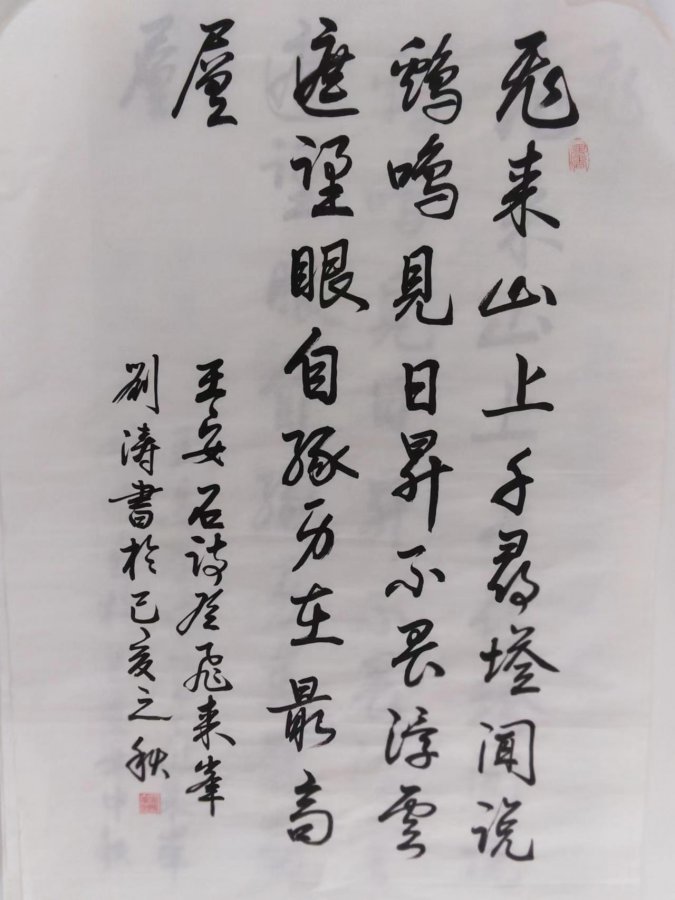 飛来山上千尋塔聞說
鷄鳴見日昇不畏浮雲
遮望眼自緣身在最高
層
王安石詩登飛来峯
劉濤書於己亥之秋